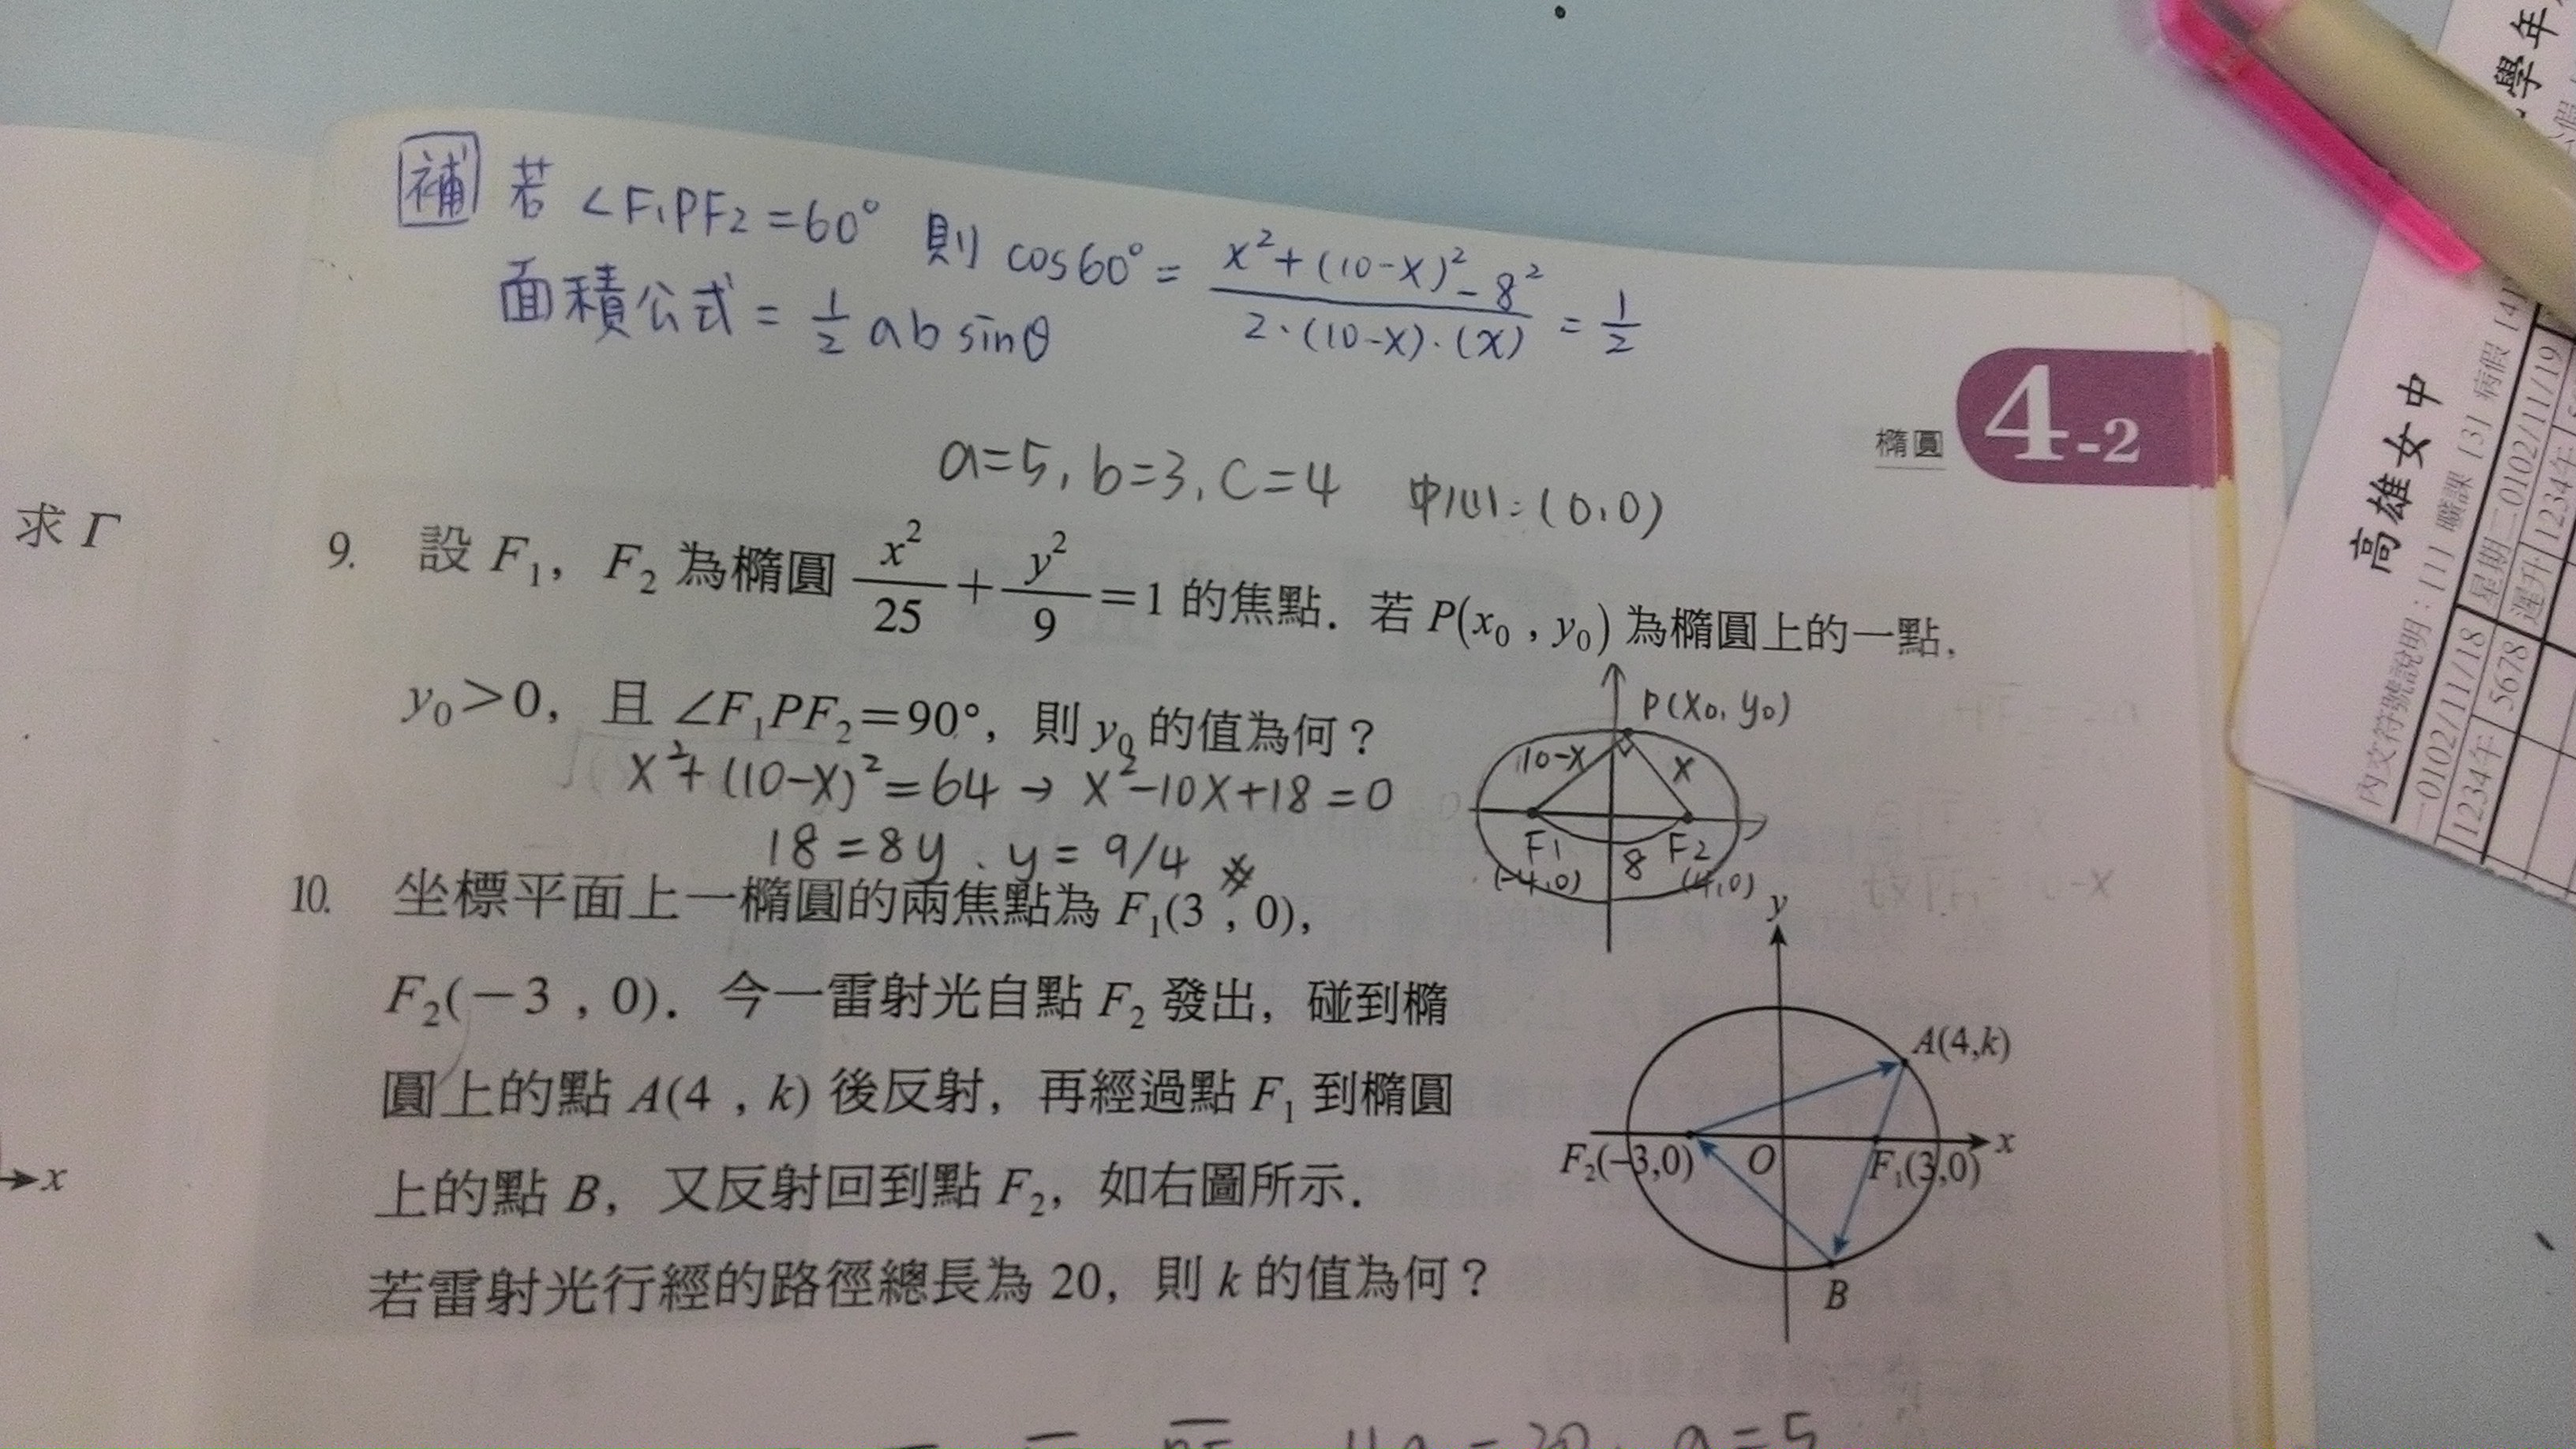 補 若 ∠F₁PF₂=60° 則 cos60° = \frac{x²+(10-x)²-8²}{2·(10-x)·(x)} = \frac{1}{2}
面積公式 = \frac{1}{2} ab sinθ
橢圓 4-2
a=5, b=3, c=4 中心:(0,0)
求 Γ
9. 設 F₁，F₂ 為橢圓 \frac{x²}{25}+\frac{y²}{9}=1 的焦點．若 P(x₀ , y₀) 為橢圓上的一點，
y₀>0，且 ∠F₁PF₂=90°，則 y₀ 的值為何？
x²+(10-x)²=64 → x²-10x+18=0
18=8y、y=9/4
P(x₀, y₀)
10-x x
F1 8 F2
(-4,0) (4,0)
10. 坐標平面上一橢圓的兩焦點為 F₁(3 , 0)，
F₂(－3 , 0)．今一雷射光自點 F₂ 發出，碰到橢
圓上的點 A(4 , k) 後反射，再經過點 F₁ 到橢圓
上的點 B，又反射回到點 F₂，如右圖所示．
若雷射光行經的路徑總長為 20，則 k 的值為何？
y
A(4,k)
x
F₂(−3,0) O F₁(3,0)
B
x
4a=20, a=5
高雄女中
內文符號說明：[1] 曠課 [3] 病假 [4]
0102/11/18 星期二 0102/11/19
1234年 5678 遲升 1234年
學年